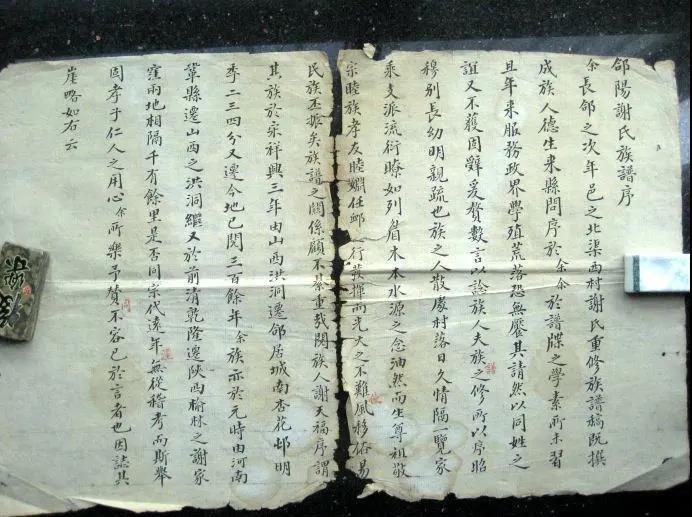 郃陽謝氏族譜序
余長郃之次年邑之北渠西村謝氏重修族譜稿既撰
成族人德生來縣問序於余余於譜牒之學素所未習
且年來服務政界學殖荒落恐無饜其請然以同姓之
誼又不獲固辭爰贅數言以諗族人夫族之修所以序昭
穆别長幼明親疏也族之人散處村落日久情隔一覽家
乘支派流衍瞭如列眉木本水源之念油然而生尊祖敬
宗睦族孝友睦婣任卹行發揮而光大之不難風移俗易
民族丕振矣族譜之關係顧不綦重哉閱族人謝天福序謂
其族於宋祥興三年由山西洪洞遷郃居城南杏花邨明
季二三四分又遷今地已閱三百餘年余族亦於元時由河南
鞏縣遷山西之洪洞繼又於前清乾隆遷陝西榆林之謝家
窪兩地相隔千有餘里是否同宗代遠年無從稽考而斯舉
固孝子仁人之用心余所樂予贊不容已於言者也因誌其
崖略如右云
譜